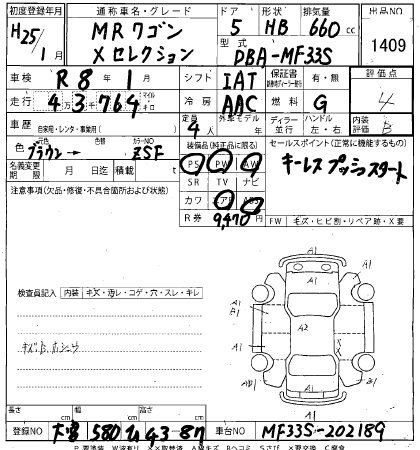 初度登録年月 通称車名・グレード ドア 形状 排気量 出品NO
H25/1月 MRワゴン Xセレクション 5 HB 660cc 1409
型式 DBA-MF33S
車検 R8年1月 シフト IAT 保証書 有・無 評価点
走行 4 3万764 マイル キロ 冷房 AAC 燃料 G 4
車歴 自家用・レンタ・事業用( ) 定員 4人 外車モデル ディーラー 並行 ハンドル 左・右 内装 評価 B
色 元色 ブラウン→ 色替 カラーNO ZSF 装備品(純正品に限る) セールスポイント(正常に機能するもの)
名義変更期限 月 日迄 積載 t PS PW AW キーレスプッシュスタート
注意事項(欠品・修復・不具合箇所および状態) SR TV ナビ
カワ エアB ABS
R券 9,470円 FW キズ・ヒビ割・リペア跡・X要
検査員記入 内装 キズ・汚レ・コゲ・穴・スレ・キレ
A1
A1
A1
B1
A1
A2
A1
A1
A1
長さ cm 幅 cm 高さ cm
登録NO 大宮 580 ム 43-87 車台NO MF33S-202189